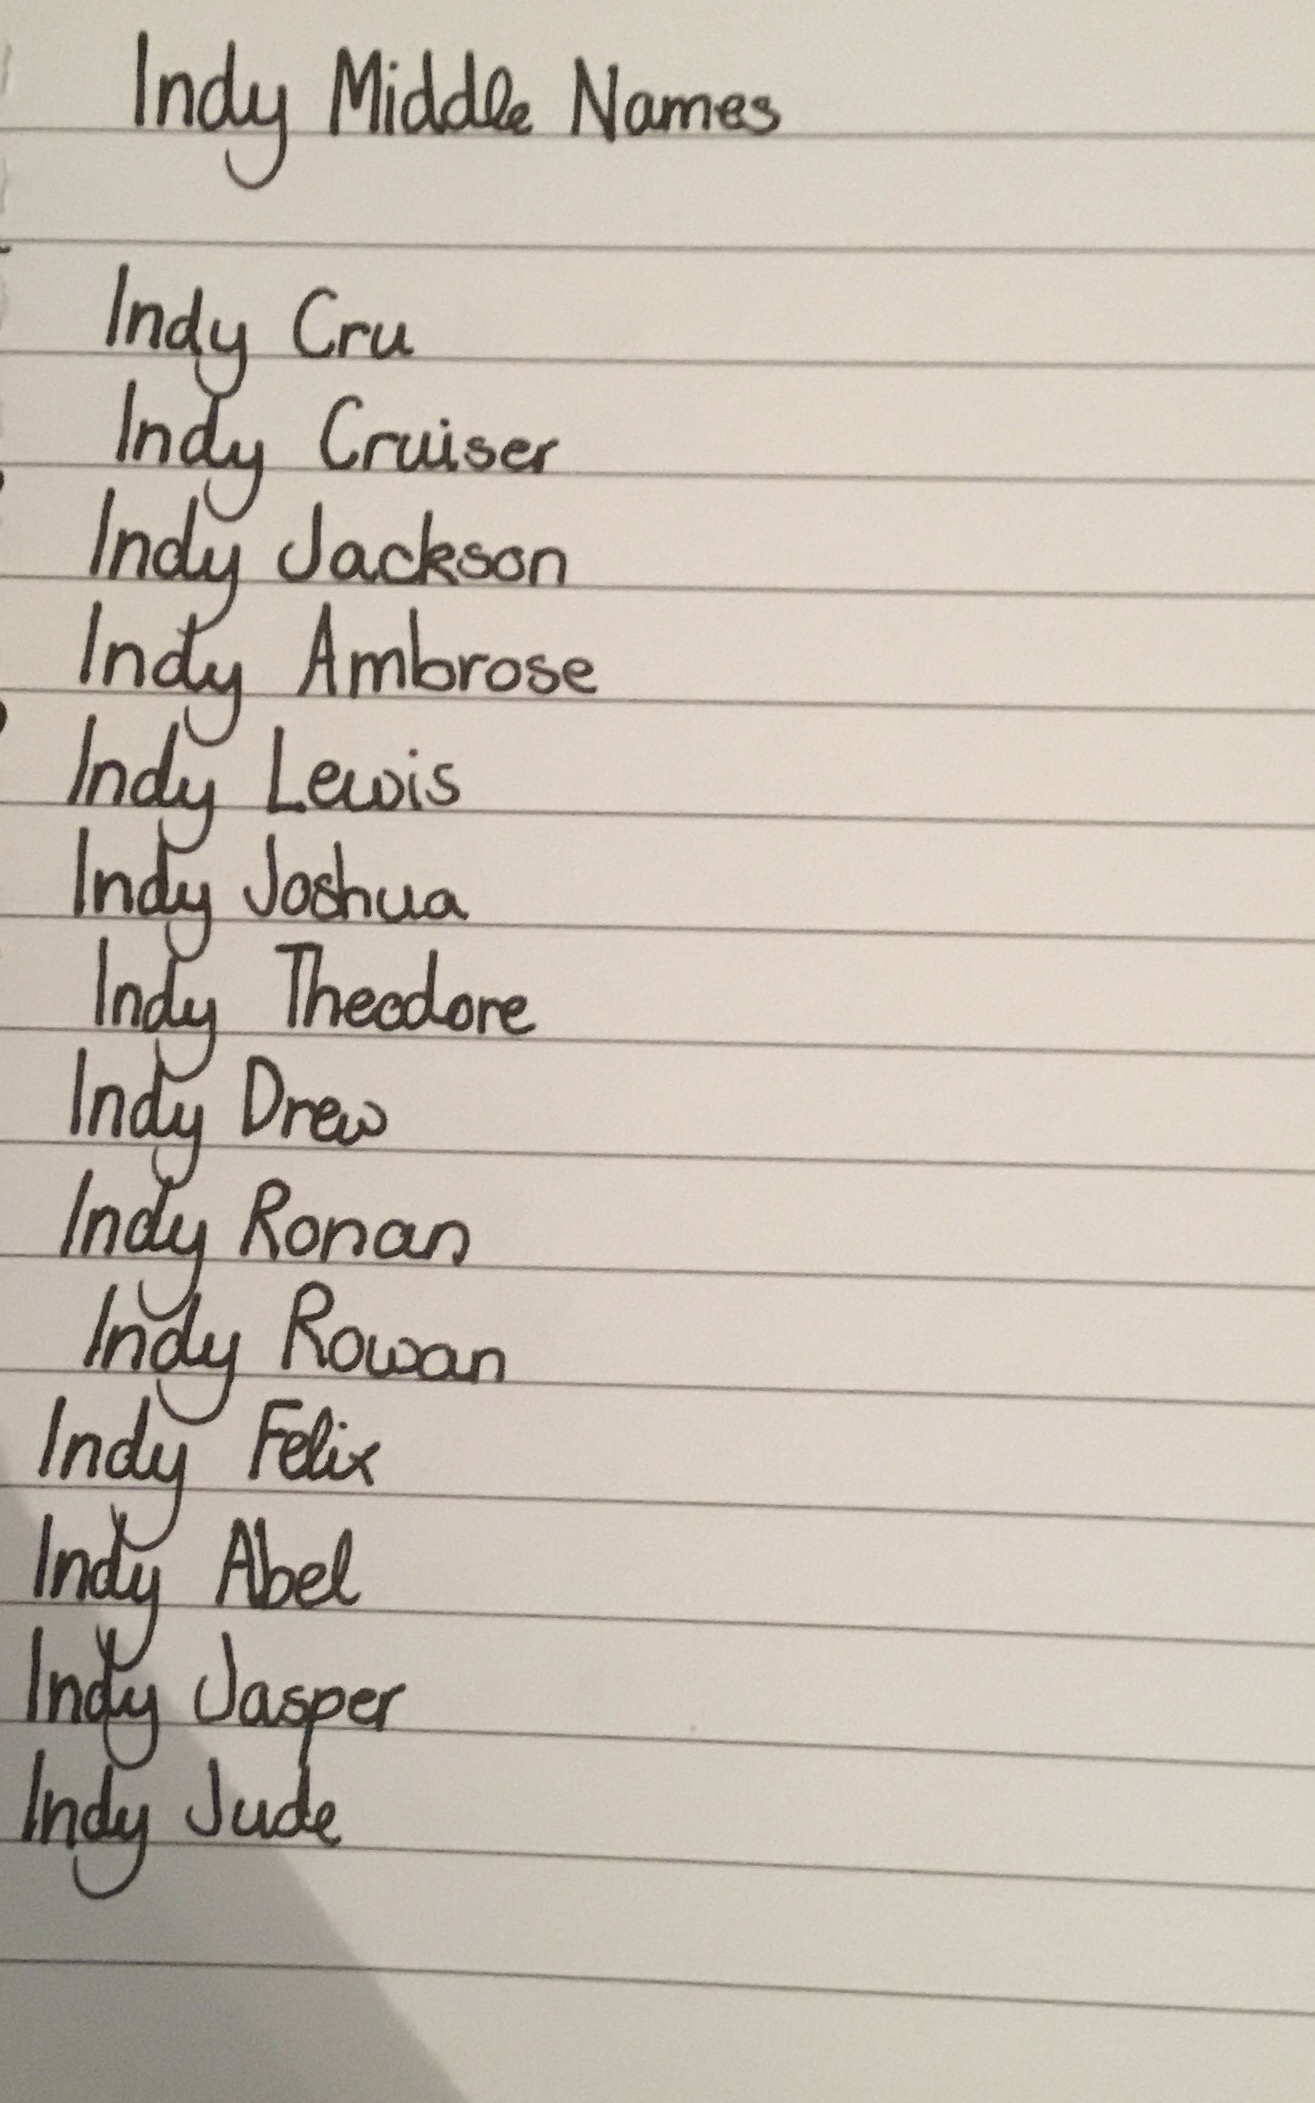 Indy Middle Names
Indy Cru
Indy Cruiser
Indy Jackson
Indy Ambrose
Indy Lewis
Indy Joshua
Indy Theodore
Indy Drew
Indy Ronan
Indy Rowan
Indy Felix
Indy Abel
Indy Jasper
Indy Jude